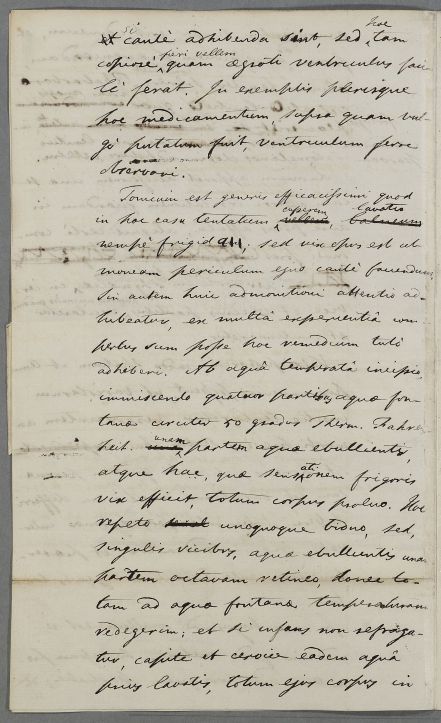 si hoc
et cautè adhibenda sint, sed tam
fieri vellem
copiosè quam ægroti ventriculus faci
le ferat. In exemplis plerisque
hoc medicamentum, supra quam vul-
go putatum fuit, ventriculum ferre
observavi.
Tonicum est generis efficacissimi quod
cuperem lavatio
in hoc casu tentatum vellem, balneum
nempè frigida, sed vix opus est ut
moneam periculum ejus cautè
Sin autem huic admonitioni attentio ad-
hibeatur, ex multâ experientiâ com-
pertus sum posse hoc remedium tutò
adhiberi. Ab aquâ temperatâ incipio
immiscendo quatuor partibus aquæ fon-
tanæ circiter 50 gradus Therm. Fahren
unam
heit. partem aquæ ebullientis,
ati
atque hac, quæ sensationem frigoris
vix efficit, totum corpus proluo. Hoc
repeto unoquoque biduo, sed,
singulis vicibus, aquæ ebullientis unam
partem octavam retineo, donec to-
tam ad aquæ fontanæ temperaturam
redegerim; et si infans non refriga-
tur, capite et cervice eadem aquâ
prius lavatis, totum ejus corpus in